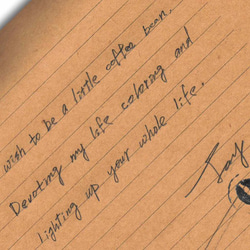 wish to be a little coffee bean.
Devoting my life coloring and
lighting up your whole life.
Joy